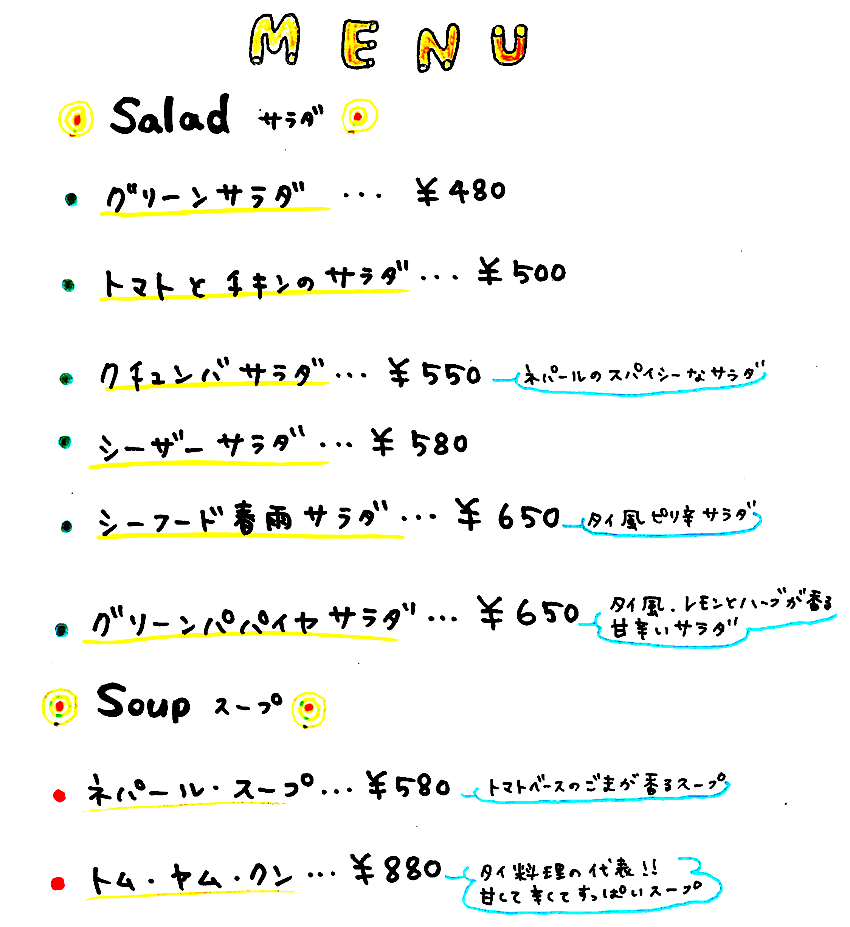 MENU
Salad サラダ
グリーンサラダ ... ¥480
トマトとチキンのサラダ ... ¥500
クチュンバサラダ ... ¥550 ネパールのスパイシーなサラダ
シーザーサラダ ... ¥580
シーフード春雨サラダ ... ¥650 タイ風ピリ辛サラダ
グリーンパパイヤサラダ ... ¥650 タイ風.レモンとハーブが香る
甘辛いサラダ
Soup スープ
ネパール・スープ ... ¥580 トマトベースのごまが香るスープ
トム・ヤム・クン ... ¥880 タイ料理の代表!!
甘くて辛くてすっぱいスープ